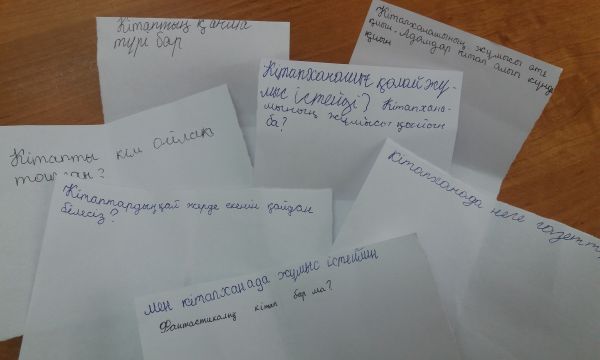 Кітаптың қанша
түрі бар
Кітапханашының жұмысы өте
қиын. Адамдар кітап алып
қиын
Кітапхананың қалай жұ-
мыс істейді? Кітапхана-
шының жұмысы қиын
ба?
Кітапты кім ойлап
тапқан?
Кітаптардың қай жерде екенін қайдан
білесіз?
Кітапханада неге газет
Мен кітапханада жұмыс істеймін
Фантастикалық кітап бар ма?